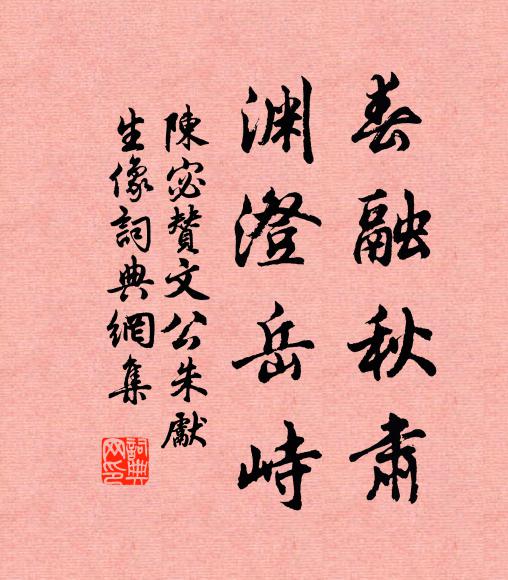 春融秋肅
淵澄岳峙
陳宓贊文公朱獻
生像詞典網集
詞典网印